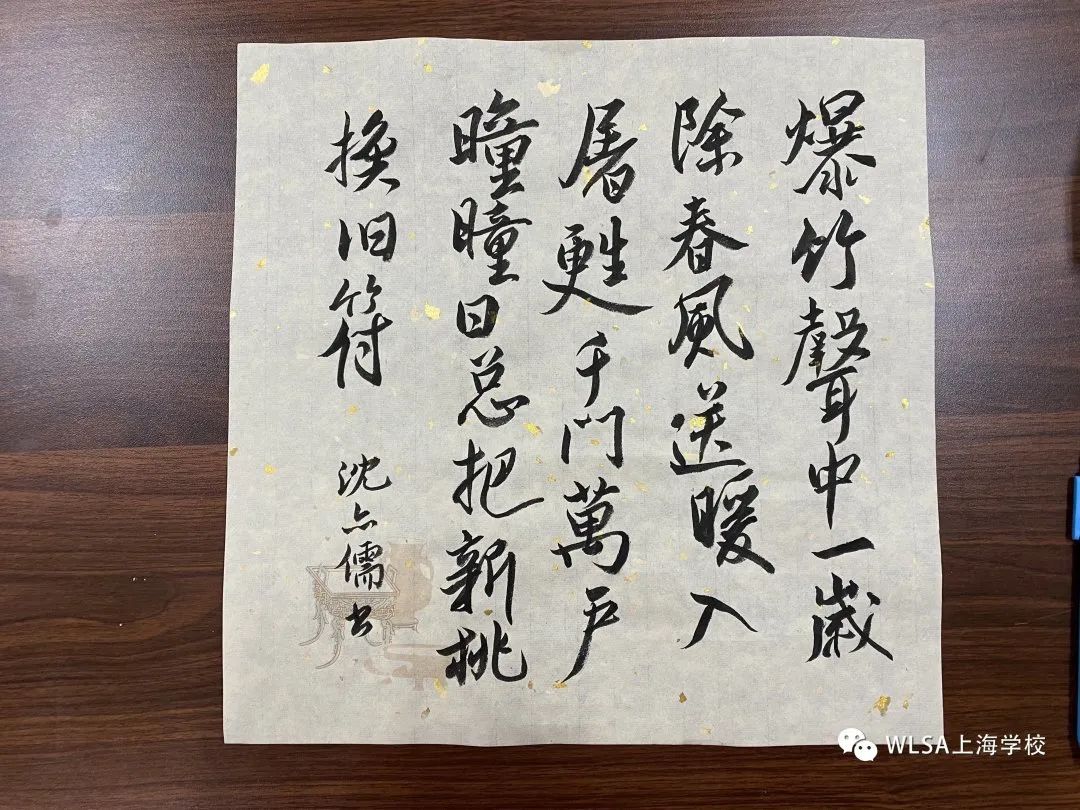 爆竹聲中一歲
除春風送暖入
屠甦千門萬户
曈曈日总把新桃
換旧符
沈亦儒书
WLSA上海学校